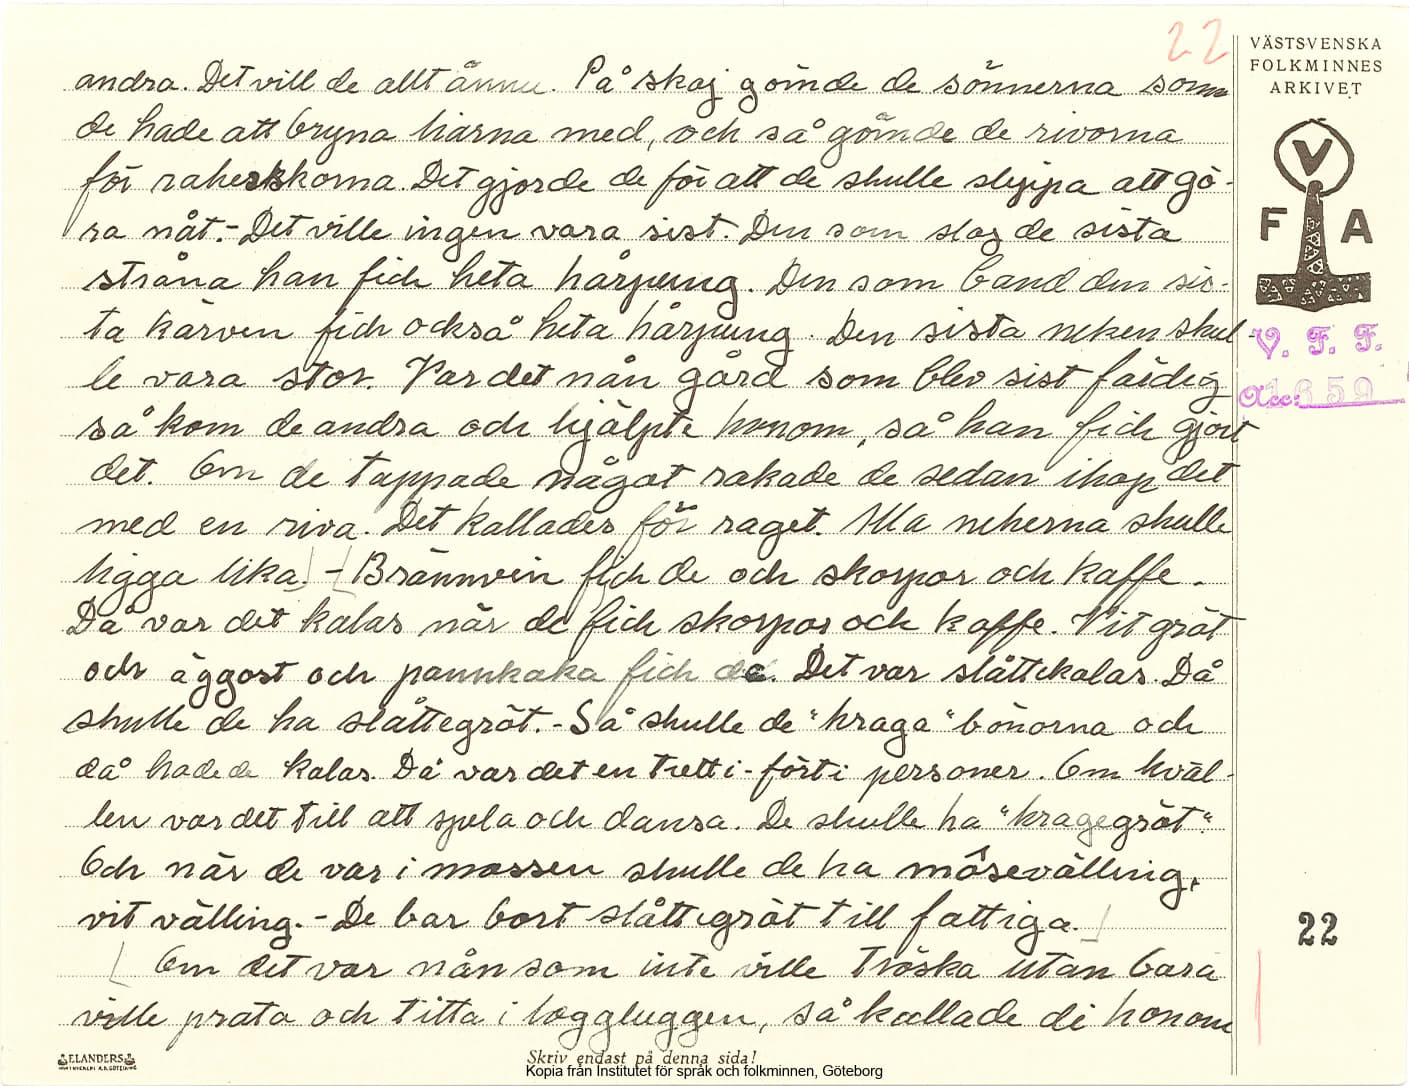 22
VÄSTSVENSKA
FOLKMINNES
ARKIVET
V
F A
V. F. F.
Acc: 1659
andra. Det vill de allt ännu. På skoj gömde de sönnerna som
de hade att bryna liarna med, och så gömde de rivorna
för raherskkorna. Det gjorde de för att de skulle slippa att gö-
ra nåt.- Det ville ingen vara sist. Den som slog de sista
stråna han fick heta hårpung. Den som band den sis-
ta kärven fick också heta hårpung. Den sista neken skul-
le vara stor. Var det nån gård som blev sist färdig
så kom de andra och hjälpte honom, så han fick gjort
det. Om de tappade något rakade de sedan ihop det
med en riva. Det kallades för raget. Alla nekerna skulle
ligga lika. - Brännvin fick de och skorpor och kaffe.
Då var det kalas när de fick skorpor och kaffe. Vit gröt
och äggost och pannkaka fick de. Det var slåttekalas. Då
skulle de ha slåttegröt.- Så skulle de "kraga" bönorna och
då hade de kalas. Då var det en tretti-förti personer. Om kväl-
len var det till att spela och dansa. De skulle ha "kragegröt".
Och när de var i mossen skulle de ha mosevälling,
vit välling.- De bar bort slåttegröt till fattiga.
Om det var nån som inte ville tröska utan bara
ville prata och titta i loggluggen, så kallade di honom
22
ELANDERS
Skriv endast på denna sida!
Kopia från Institutet för språk och folkminnen, Göteborg